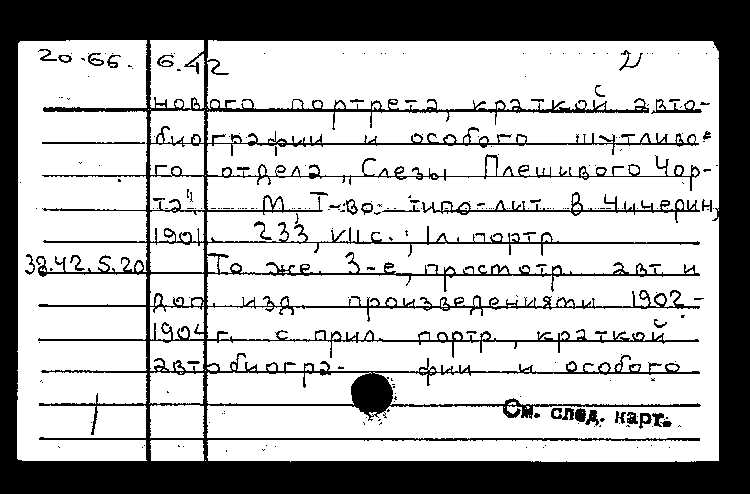 20.66. 6.42 2
нового портрета, краткой авто-
биографии и особого шутливо-
го отдела „Слезы Плешивого Чор-
та". М, Т-во типо-лит. В. Чичерин,
1901. 233, VII с.; 1 л. портр.
38.42.5.20 То же. 3-е, просмотр. авт. и
доп. изд. произведениями 1902-
1904 г. с прил. портр., краткой
автобиогра- фии и особого
См. след. карт.